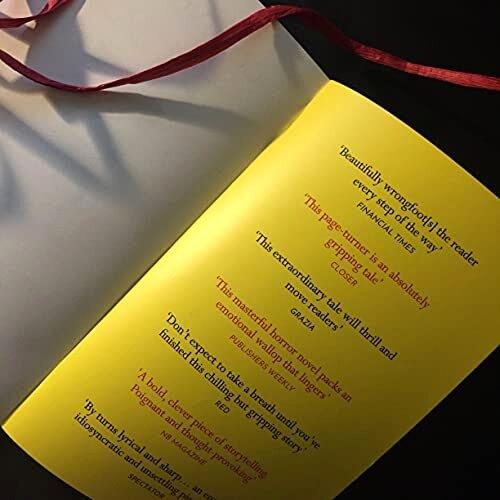 'Beautifully wrongfoot[s] the reader
every step of the way'
FINANCIAL TIMES
'This page-turner is an absolutely
gripping tale'
CLOSER
'This extraordinary tale will thrill and
move readers'
GRAZIA
'This masterful horror novel packs an
emotional wallop that lingers'
PUBLISHERS WEEKLY
'Don't expect to take a breath until you've
finished this chilling but gripping story'
RED
'A bold, clever piece of storytelling
Poignant and thought provoking'
NB MAGAZINE
'By turns lyrical and sharp… an
idiosyncratic and unsettling
SPECTATOR